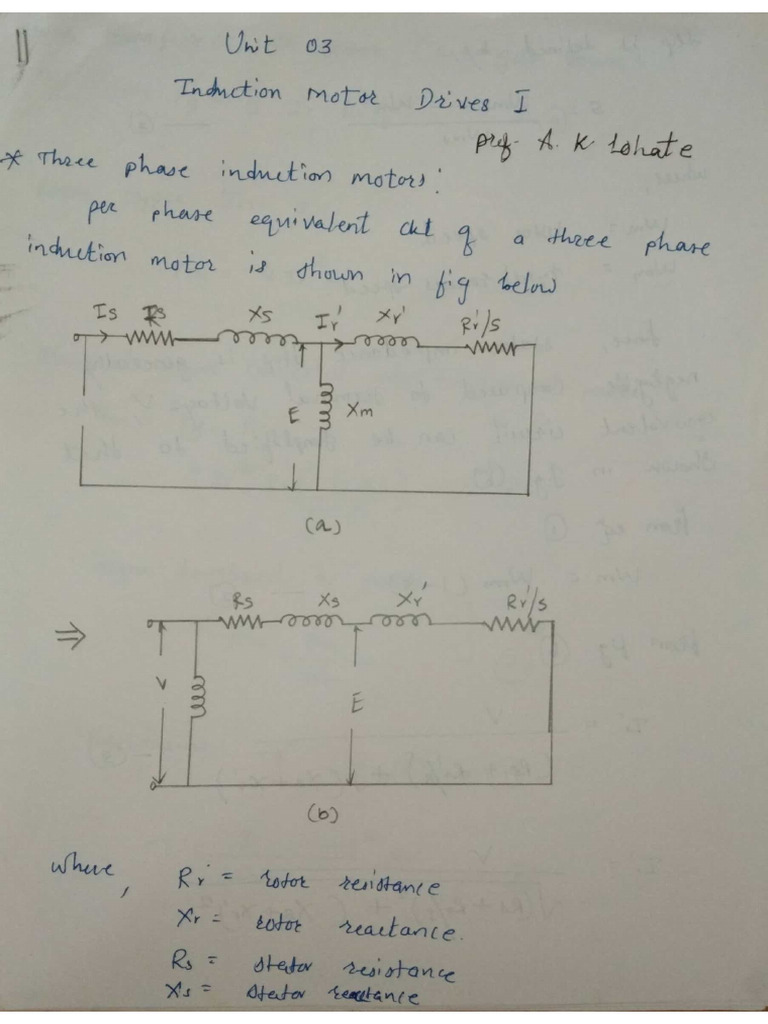 Unit 03
Induction motor Drives I
prof. A. K. Lohate
* Three phase induction motors:
per phase equivalent ckt of a three phase
induction motor is shown in fig below
Is Rs Xs Ir' Xr' Rr'/s
E Xm
(a)
⇒ Rs Xs Xr' Rr'/s
V E
(b)
where,
Rr' = rotor resistance
Xr = rotor reactance.
Rs = stator resistance
Xs = stator reactance